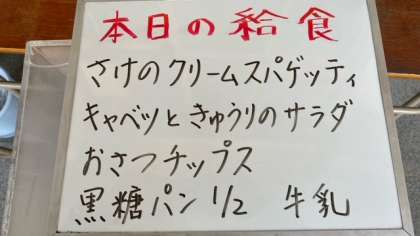 本日の給食
さけのクリームスパゲッティ
キャベツときゅうりのサラダ
おさつチップス
黒糖パン 1/2 牛乳